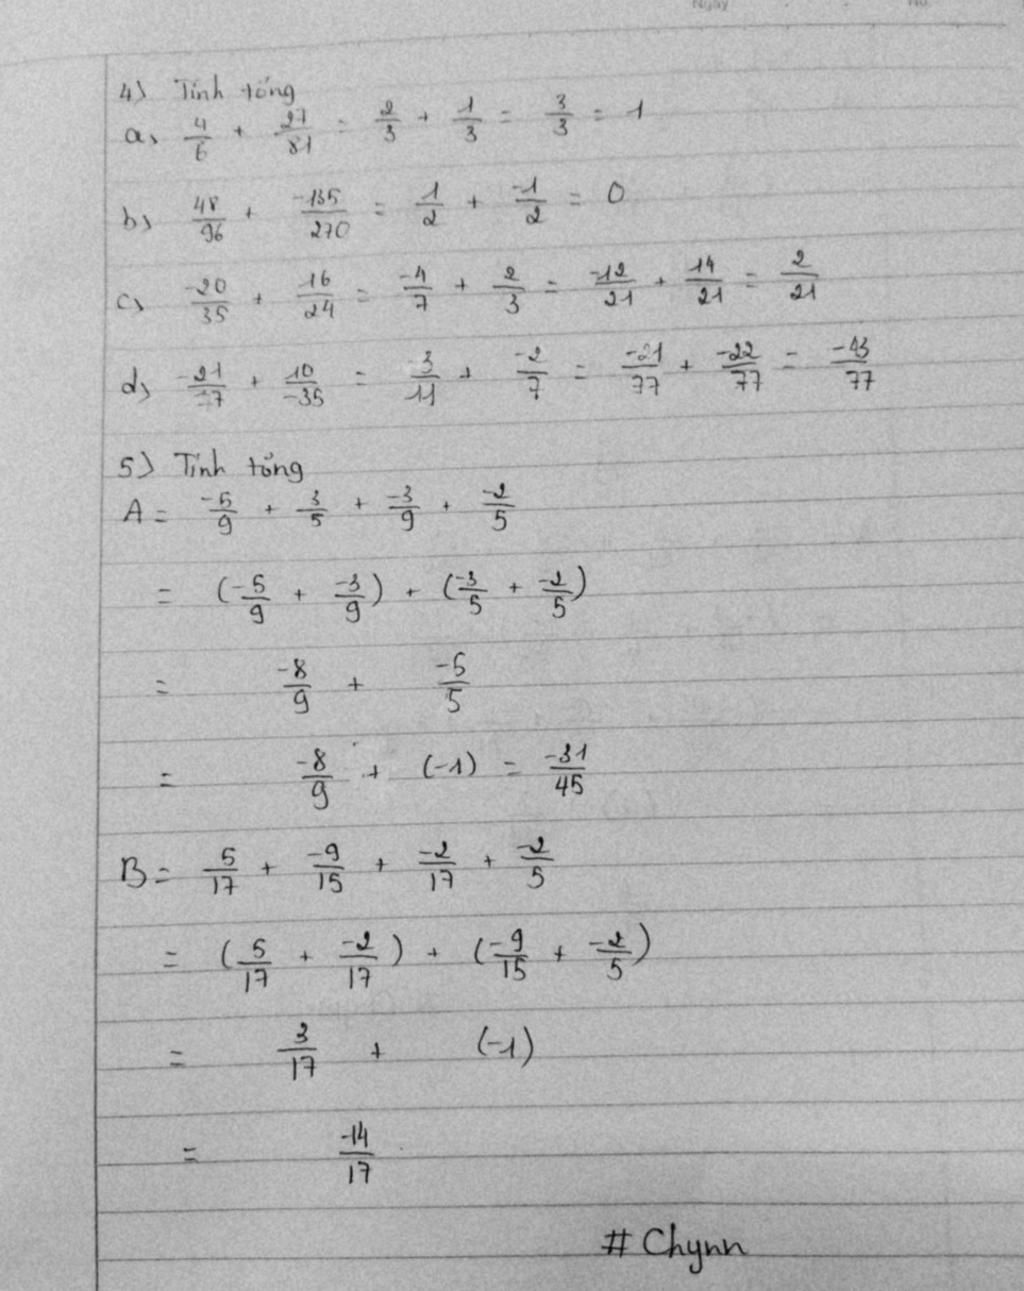 4) Tính tổng
a, 4/6 + 27/81 = 2/3 + 1/3 = 3/3 = 1
b) 48/96 + -135/270 = 1/2 + -1/2 = 0
c) -20/35 + 16/24 = -4/7 + 2/3 = -12/21 + 14/21 = 2/21
d) + 10/-35 = -3/11 + -2/7 = -21/77 + -22/77 = -43/77
5) Tính tổng
A = -5/9 + 3/5 + -3/9 + -2/5
= (-5/9 + -3/9) + (-3/5 + -2/5)
= -8/9 + -5/5
= -8/9 + (-1) = -31/45
B = 5/17 + -9/15 + -2/17 + -2/5
= (5/17 + -2/17) + (-9/15 + -2/5)
= 3/17 + (-1)
= -14/17
# Chynn